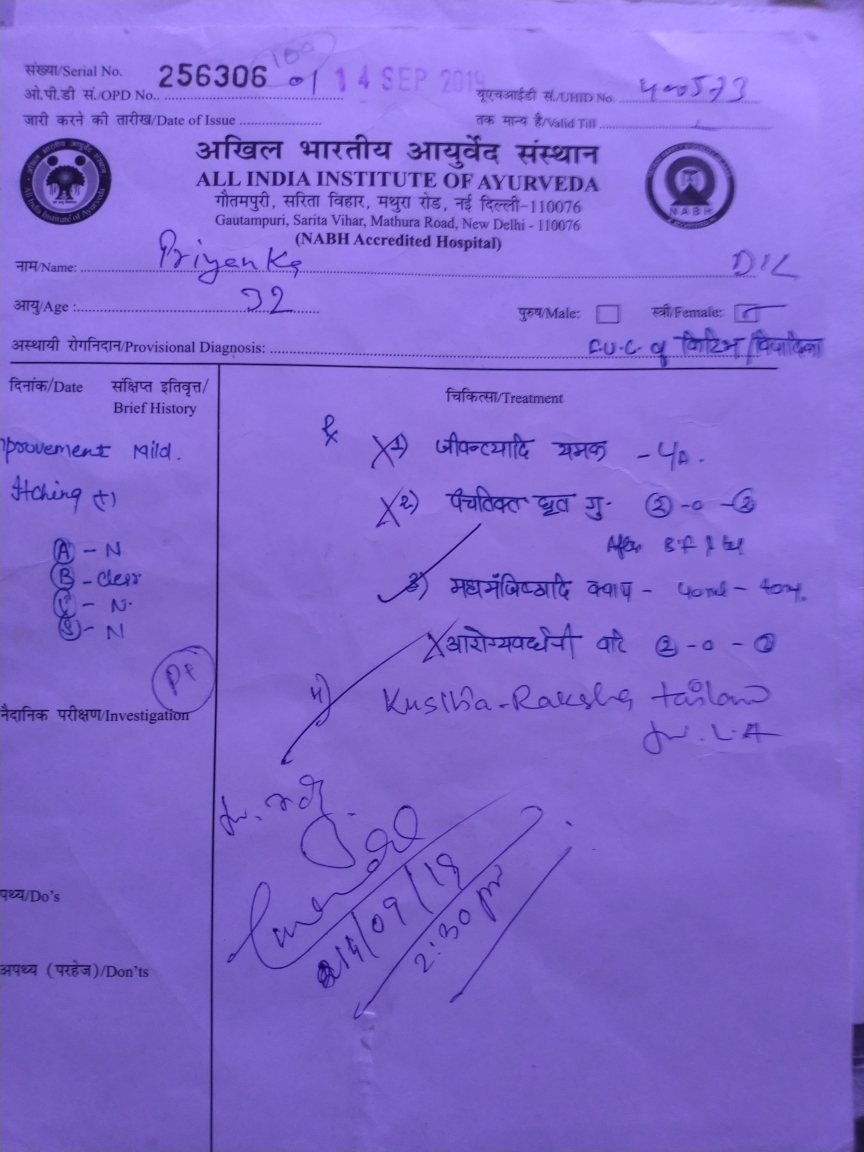 संख्या/Serial No. 256306 01 14 SEP 2019
ओ.पी.डी सं./OPD No. यूएचआईडी सं./UHID No. 400573
जारी करने की तारीख/Date of Issue तक मान्य है/Valid Till
अखिल भारतीय आयुर्वेद संस्थान
ALL INDIA INSTITUTE OF AYURVEDA
गौतमपुरी, सरिता विहार, मथुरा रोड, नई दिल्ली-110076
Gautampuri, Sarita Vihar, Mathura Road, New Delhi - 110076
(NABH Accredited Hospital)
All India Institute of Ayurveda
NABH
नाम/Name: Priyanka
आयु/Age : 32 पुरुष/Male: स्त्री/Female:
अस्थायी रोगनिदान/Provisional Diagnosis: F.U.C of किटिभ/विपादिका
दिनांक/Date संक्षिप्त इतिवृत्त/ चिकित्सा/Treatment
Brief History
provement Mild.
Itching (+)
A - N
B - clear
N.
N
नैदानिक परीक्षण/Investigation
पथ्य/Do's
अपथ्य (परहेज)/Don'ts
℞
1) जीवन्त्यादि यमक - L/A.
2) पंचतिक्त घृत गु- 2-0-2
After B.F
3) महामंजिष्ठादि क्वाथ - 40ml - 40ml.
आरोग्यवर्धनी वटि 2-0-2
4) Kustha-Raksha tailam
L.A
14/09/19
2:30 pm